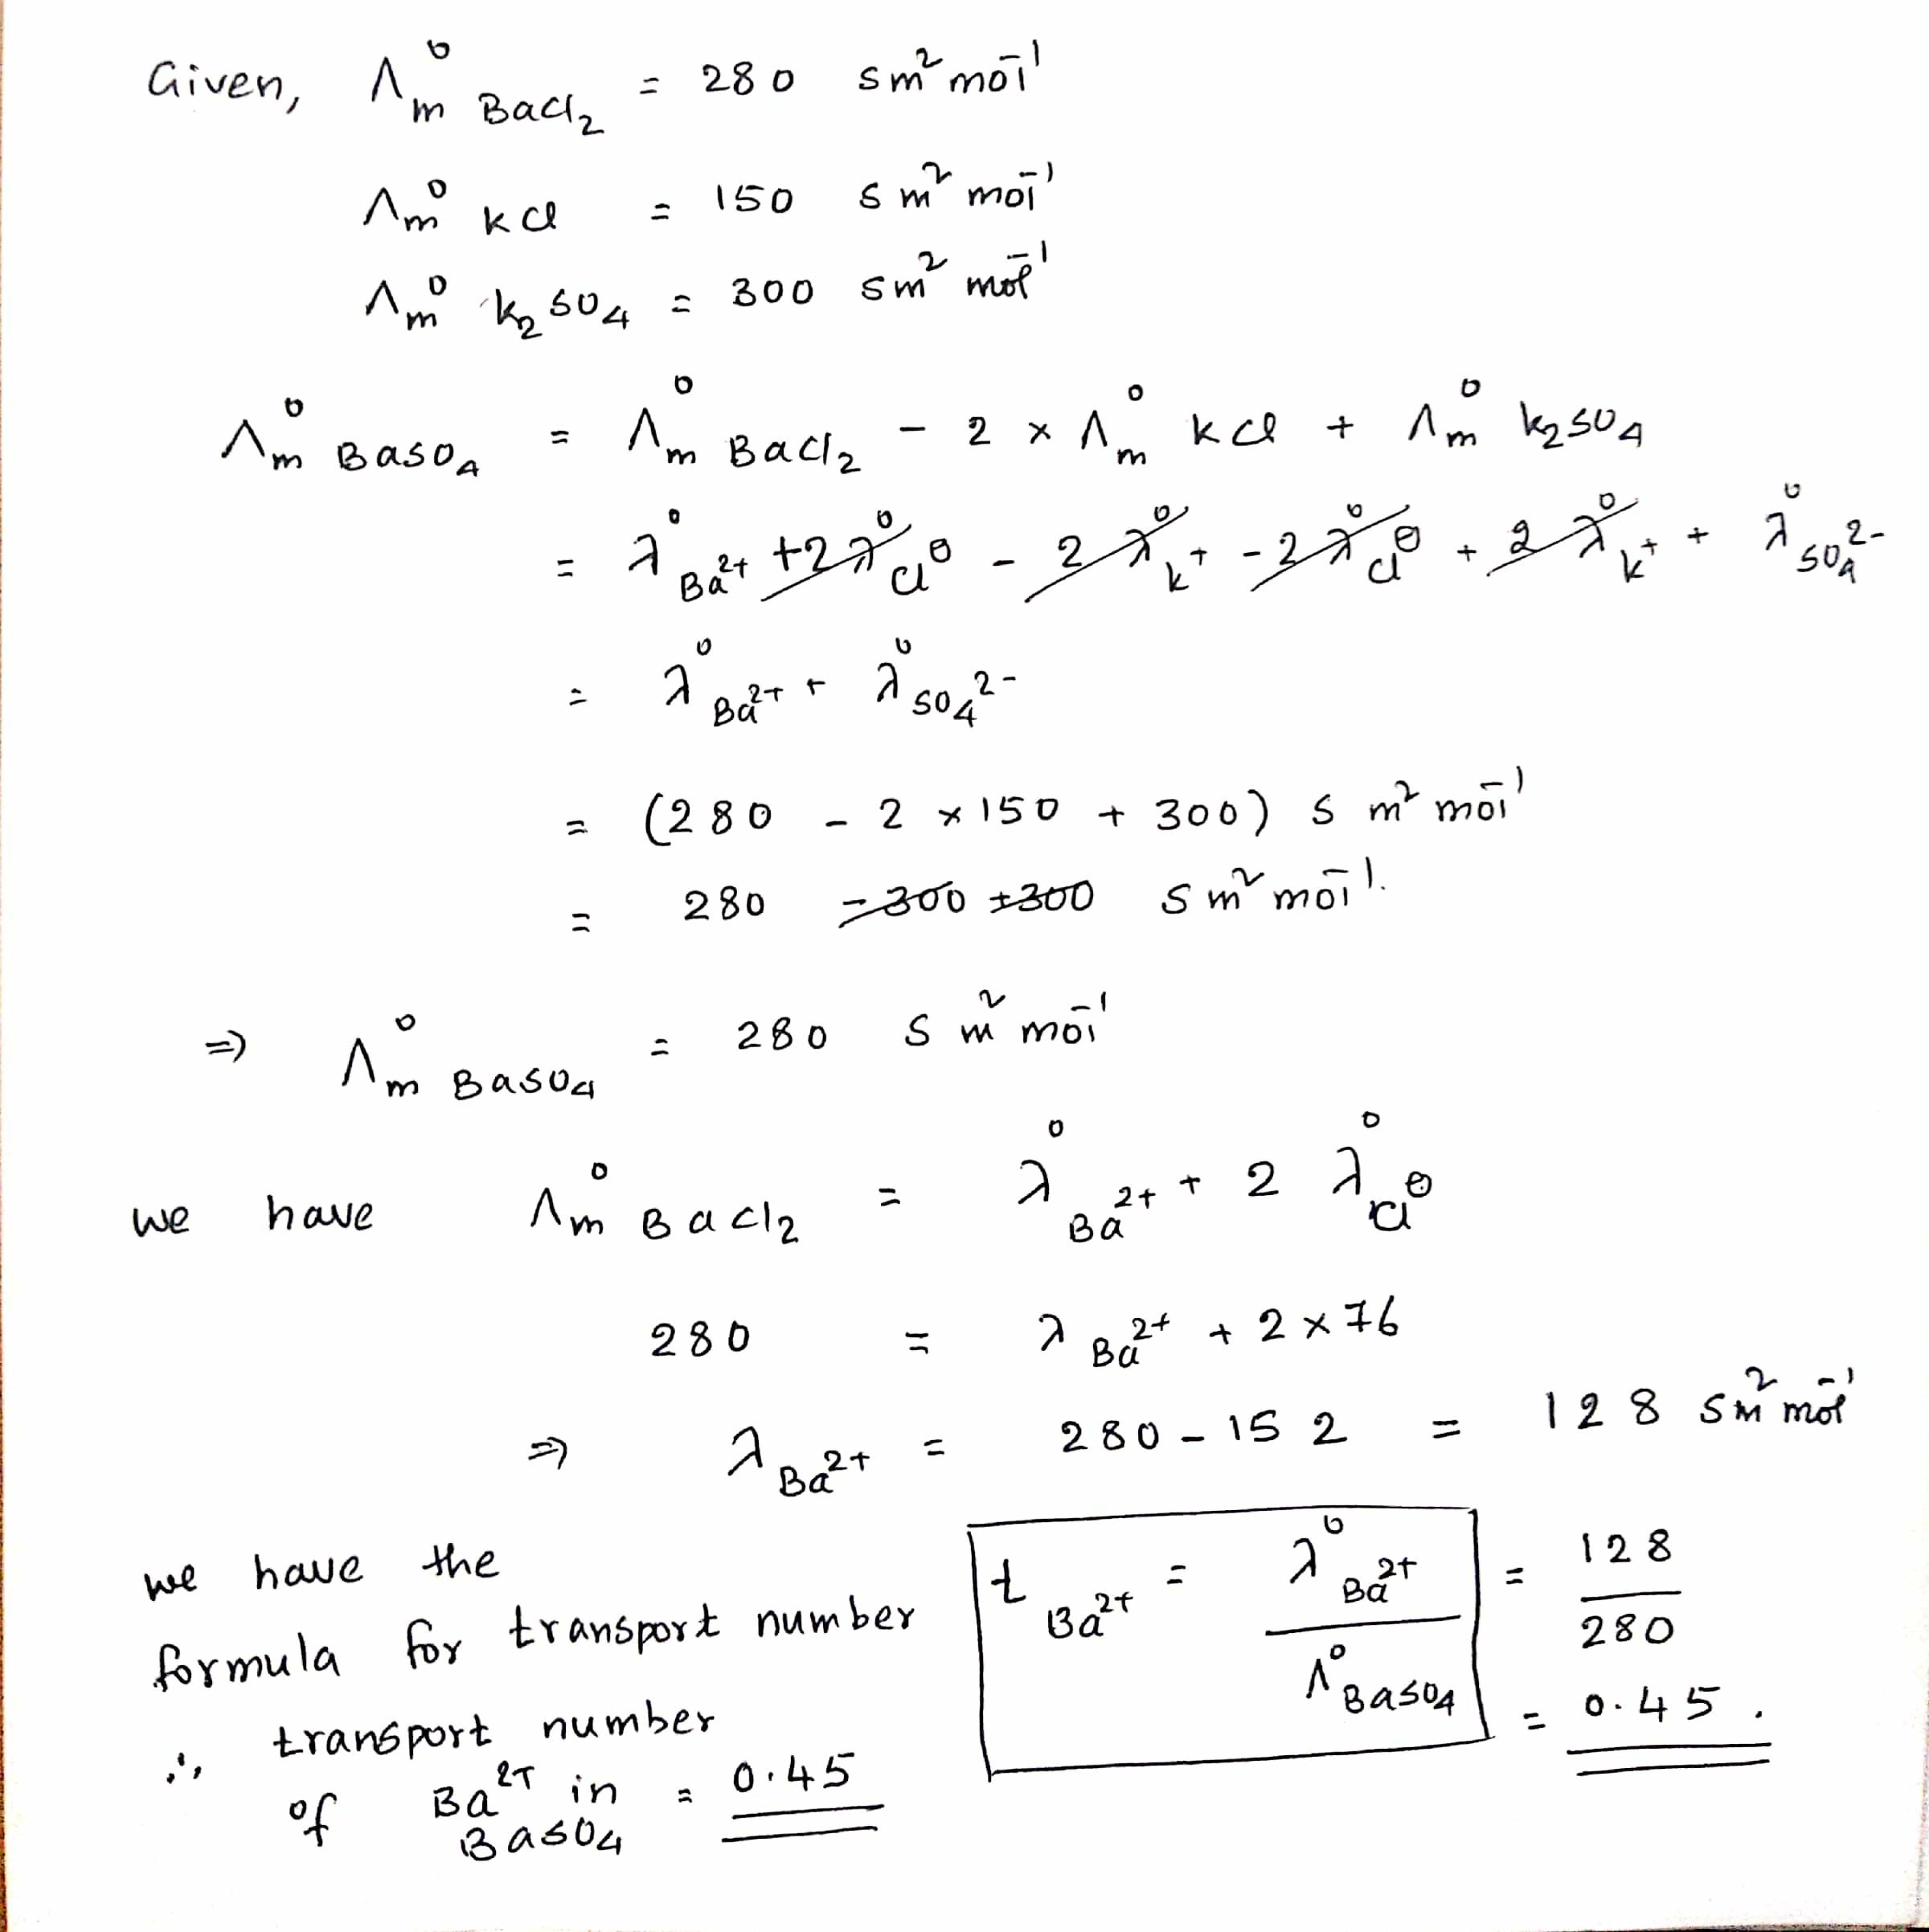 Given, Λm° BaCl₂ = 280 Sm² mol⁻¹
Λm° KCl = 150 Sm² mol⁻¹
Λm° K₂SO₄ = 300 Sm² mol⁻¹
Λm° BaSO₄ = Λm° BaCl₂ - 2 × Λm° KCl + Λm° K₂SO₄
= λ° Ba²⁺ + 2λ° Cl⊖ - 2λ° K⁺ - 2λ° Cl⊖ + 2λ° K⁺ + λ° SO₄²⁻
= λ° Ba²⁺ + λ° SO₄²⁻
= (280 - 2 × 150 + 300) S m² mol⁻¹
= 280 - 300 + 300 S m² mol⁻¹.
⇒ Λm° BaSO₄ = 280 S m² mol⁻¹
We have Λm° BaCl₂ = λ° Ba²⁺ + 2 λ° Cl⊖
280 = λ Ba²⁺ + 2 × 76
⇒ λ Ba²⁺ = 280 - 152 = 128 Sm² mol⁻¹
we have the
formula for transport number
t Ba²⁺ = λ° Ba²⁺ / Λ° BaSO₄ = 128 / 280
= 0.45.
∴ transport number
of Ba²⁺ in BaSO₄ = 0.45